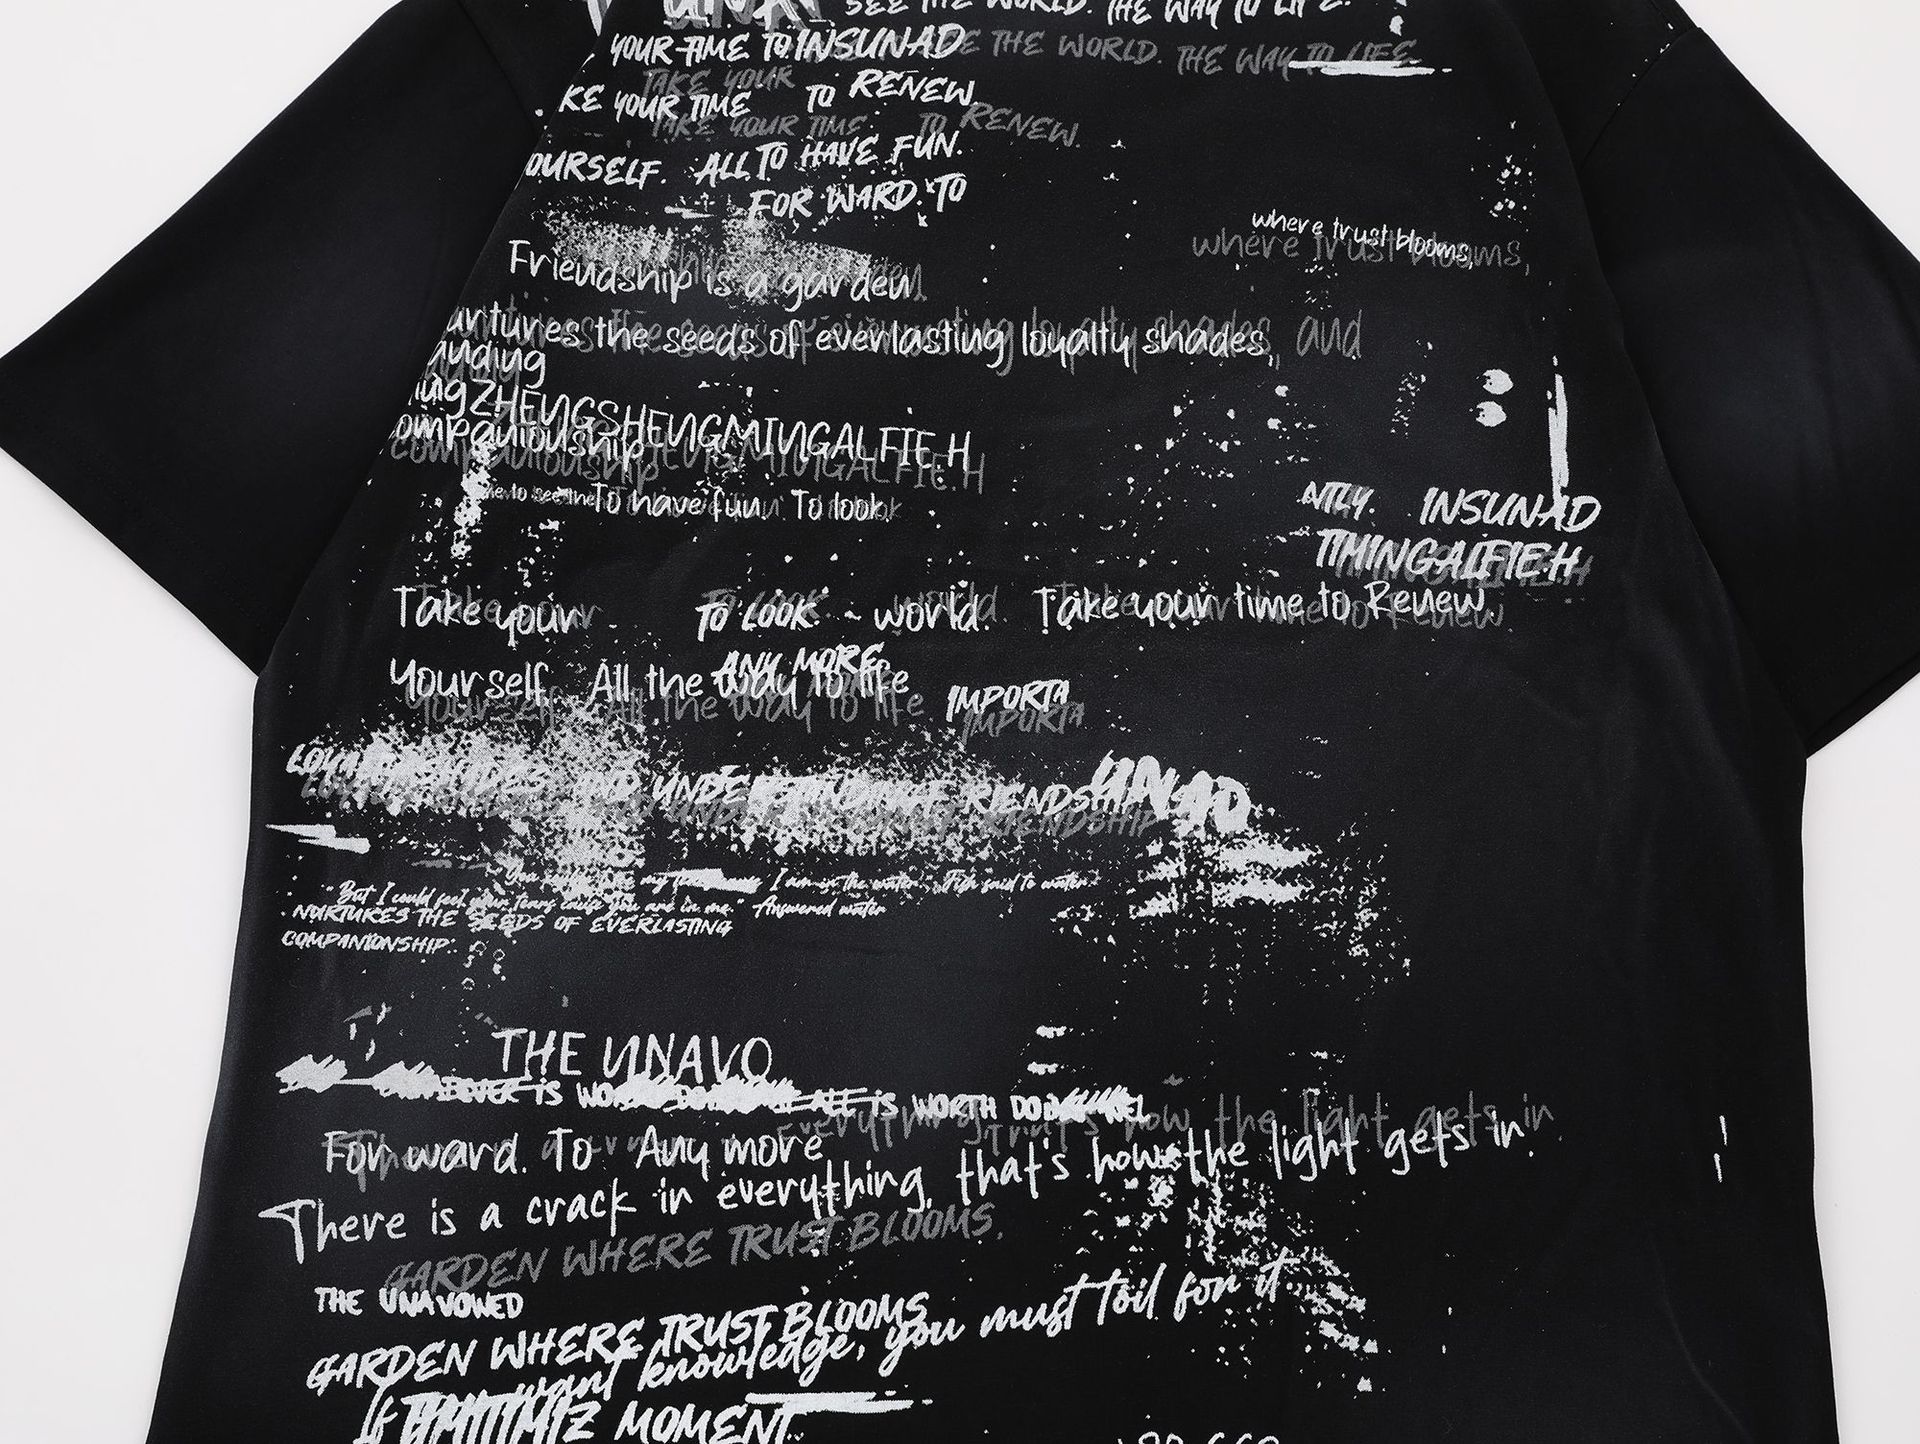 SEE THE WORLD. THE WAY TO LIFE.
YOUR TIME TO INSUNAD
SEE THE WORLD. THE WAY TO LIFE.
TAKE YOUR
KE YOUR TIME TO RENEW.
TAKE YOUR TIME TO RENEW.
OURSELF. ALL TO HAVE FUN.
FOR WARD. TO
where trust blooms,
where trust blooms,
Friendship is a garden
urtures the seeds of everlasting loyalty shades, and
anding
ingZHENGSHENGMINGALFIE.H
ompanionship
companionship
To have fun. To look.
NTLY. INSUNAD
TIMINGALFIE.H
Take your TO LOOK ~ world. Take your time to Renew.
ANY MORE
Yourself. All the way to life
Yourself. All the way to life
IMPORTA
IMPORTA
AND UNDE FRIENDSHIP
FRIENDSHIP
UNAD
my I am in the water. Fish said to water.
But I could feel your tears cause you are in me." Answered water
NURTURES THE SEEDS OF EVERLASTING
COMPANIONSHIP.
THE UNAVO
IS WO IS WORTH DO
everything, that's how the light gets in.
For ward. To Any more
There is a crack in everything, that's how the light gets in.
GARDEN WHERE TRUST BLOOMS.
THE UNAVOWED
GARDEN WHERE TRUST BLOOMS
If you want knowledge, you must toil for it.
MOMENT